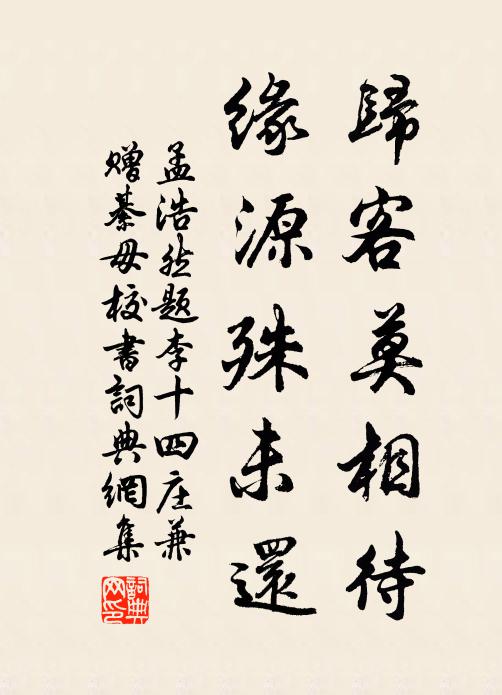 歸客莫相待
緣源殊未還
孟浩然題李十四庄兼
贈綦毋校書詞典網集
詞典網印